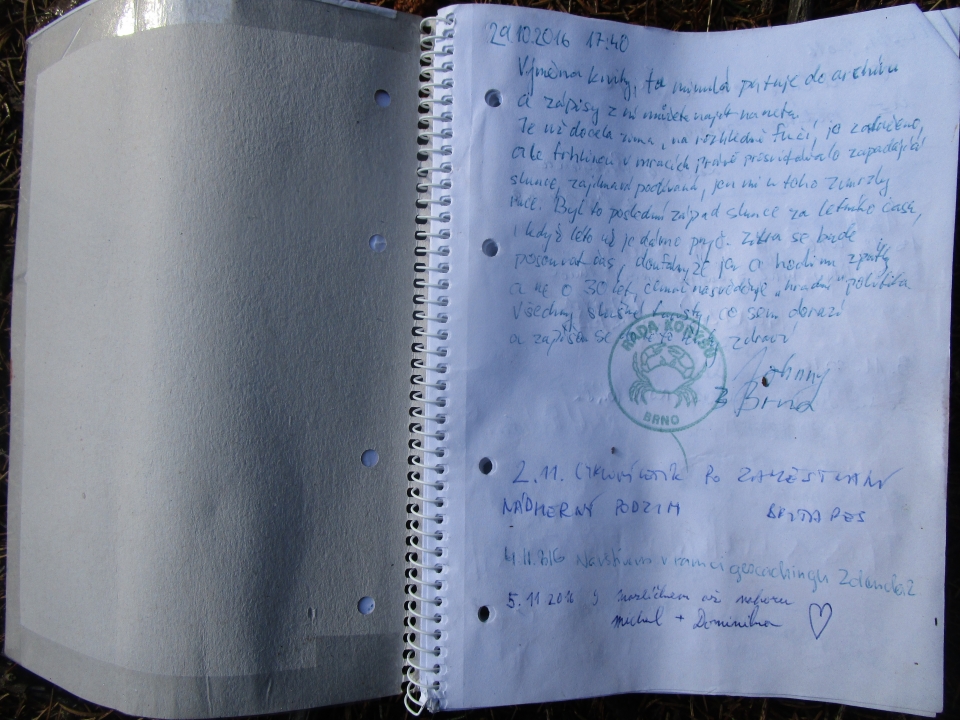 29.10.2016 17:40
Výměna knihy, ta minulá putuje do archivu
a zápisy z ní můžete najít na netu.
Je už docela zima, na rozhledně fučí, je zataženo,
ale trhlinou v mracích právě prosvítalo zapadající
slunce, zajímavá podívaná, jen mi u toho zmrzly
ruce. Byl to poslední západ slunce za letního času,
i když léto už je dávno pryč. Zítra se bude
posouvat čas, doufám, že jen o hodinu zpátky
a ne o 30 let, čemuž nasvědčuje „hradní" politika
Všechny slušné, co sem dorazí
a zapíšou se zdraví
Johnny
z Brna
RADA KONZUM
BRNO
2.11. PO ZAMĚSTNÁNÍ
NÁDHERNÝ PODZIM PES
4.11.2016 Navštíveno v rámci geocachingu Zdenda.2
5.11.2016 S mazlíčkem až nahoru
Michal + Dominika